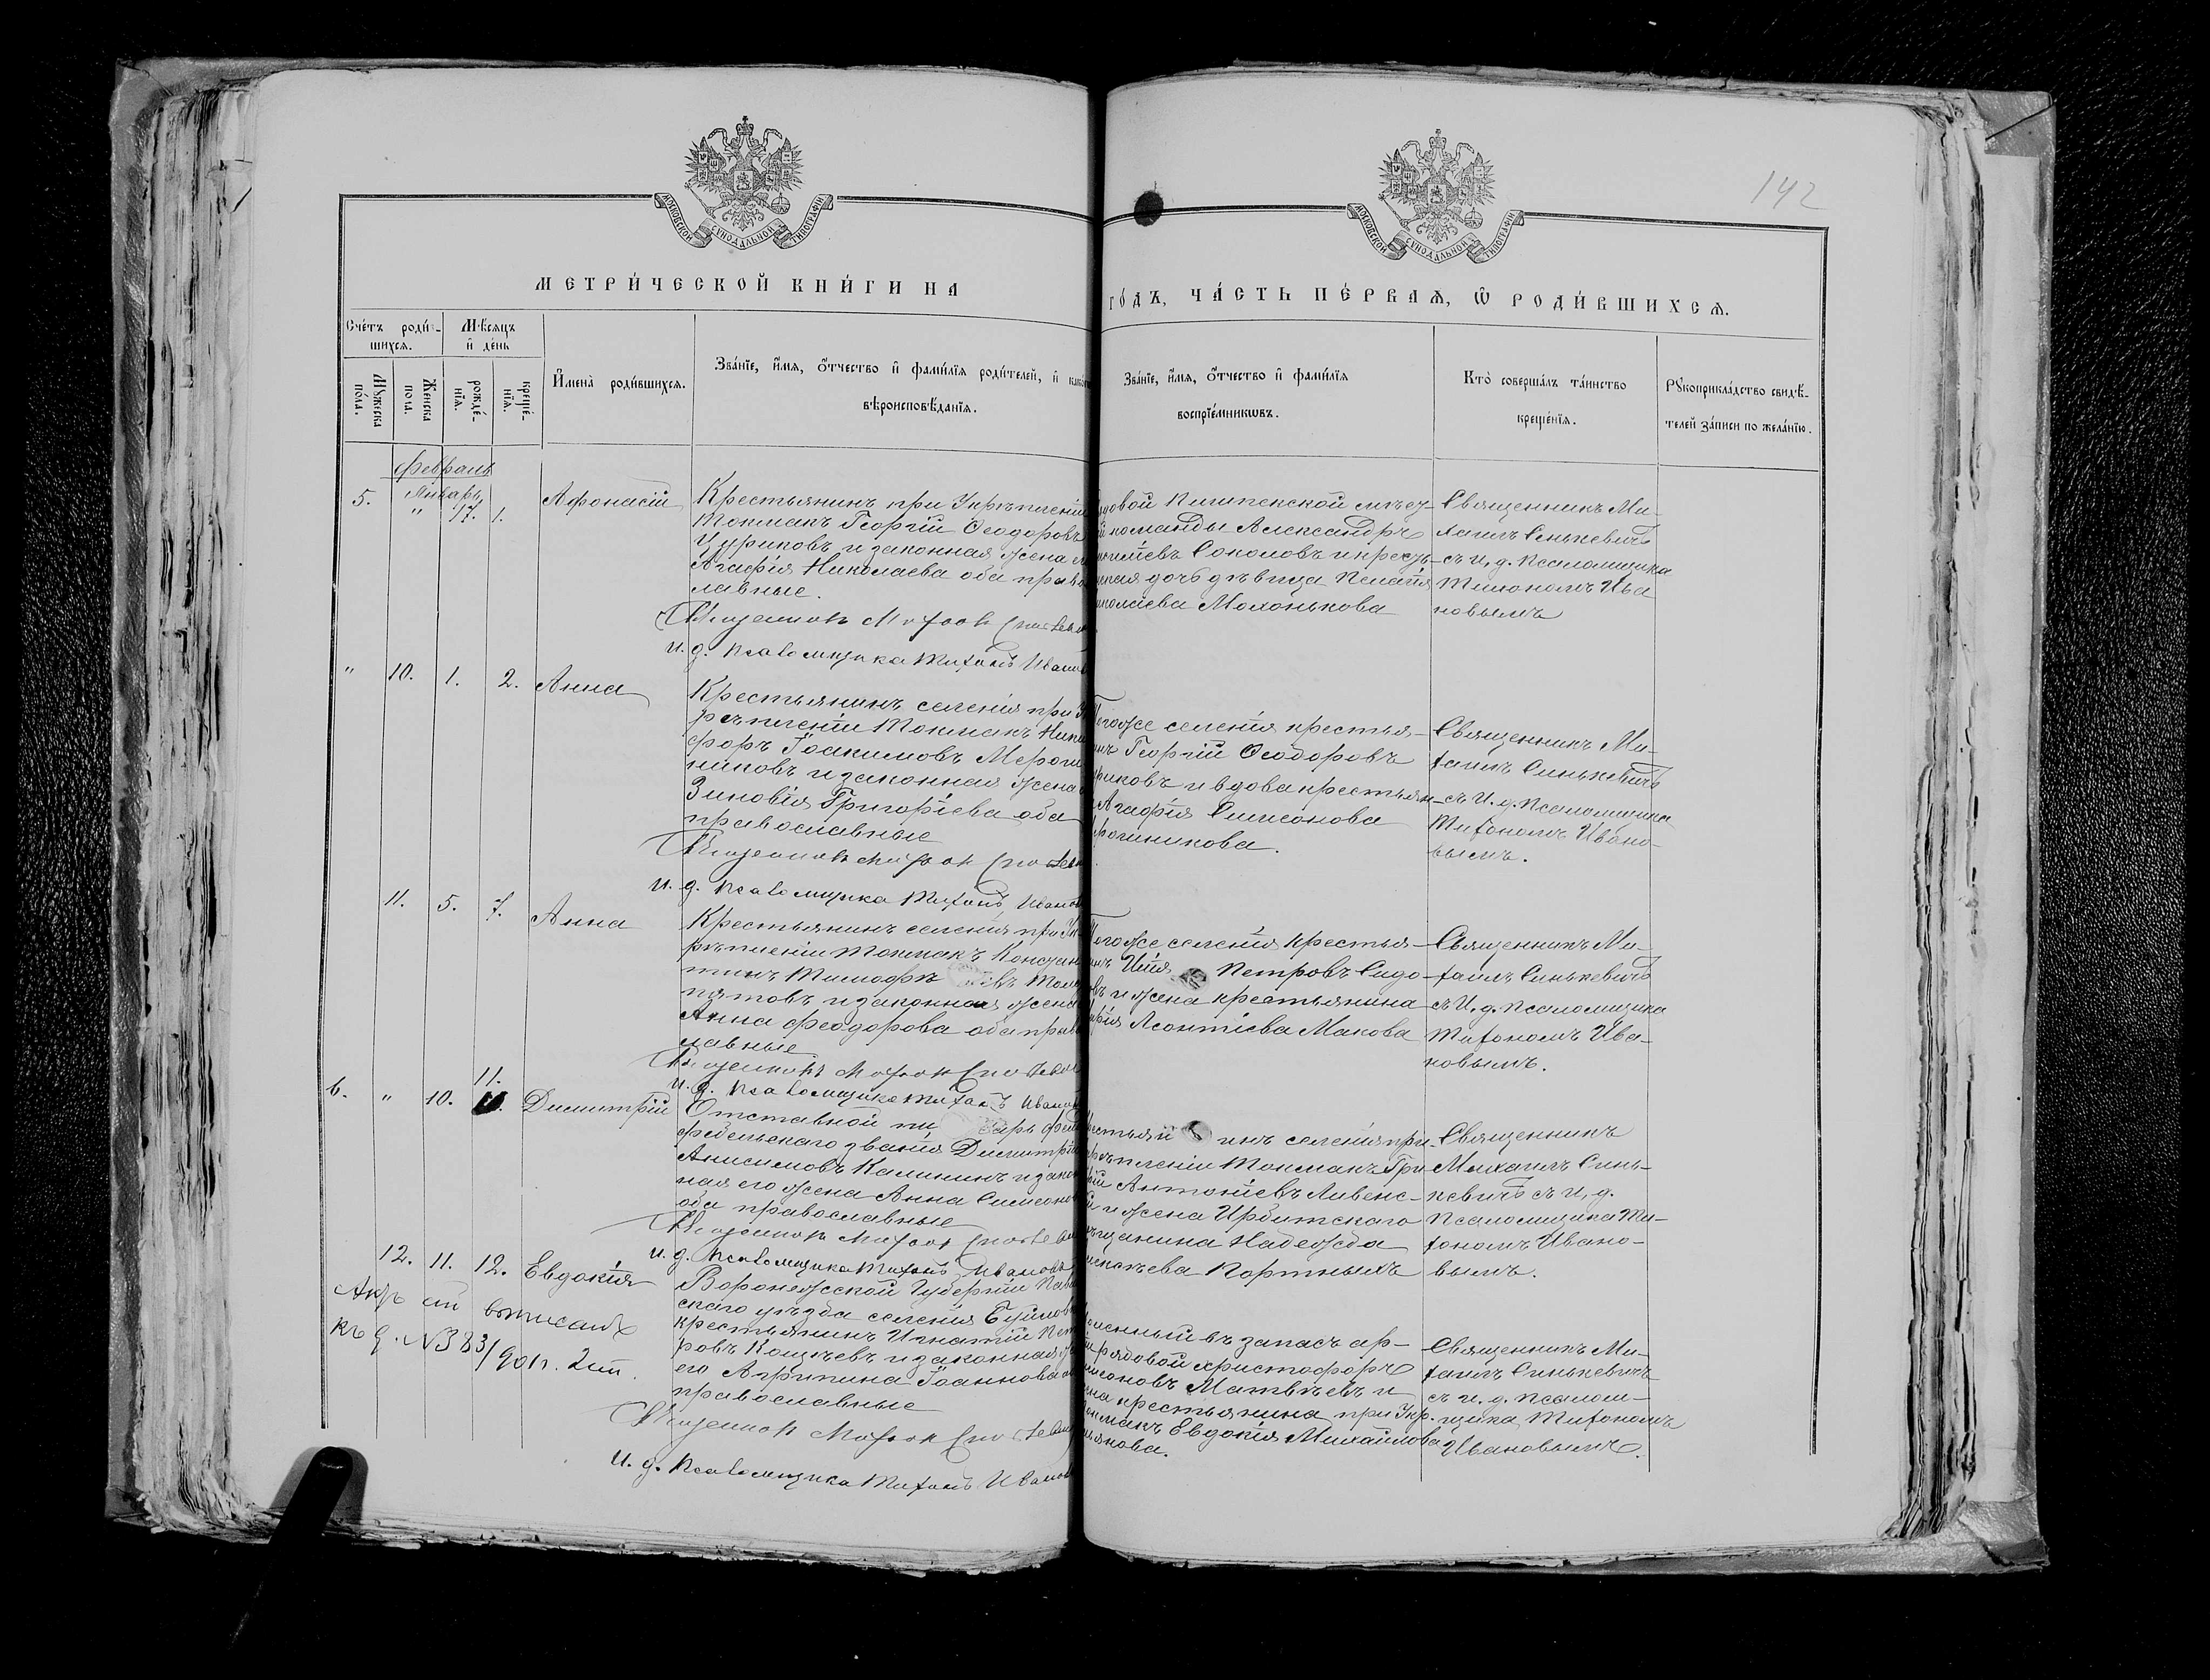 142
МОСКОВСКОЙ СѴНОДАЛЬНОЙ ТИПОГРАФІИ
МОСКОВСКОЙ СѴНОДАЛЬНОЙ ТИПОГРАФІИ
МЕТРИ́ЧЕСКОЙ КНИ́ГИ НА
ГО́ДЪ, ЧА́СТЬ ПЕ́РВАѦ, Ѡ҆ РОДИ́ВШИХСѦ.
Сче́тъ роди́-
шихсѧ.
Мѣ́сѧцъ
и҆ де́нь
Мꙋ́жеска
по́ла.
Же́нска
по́ла.
рожде́-
нїѧ.
креще́-
нїѧ.
И҆мена̀ роди́вшихсѧ.
Зва́нїе, и҆́мѧ, ѻ҆́тчество и҆ фами́лїѧ роди́телей, и҆ како́
вѣроисповѣ́данїѧ.
Зва́нїе, и҆́мѧ, ѻ҆́тчество и҆ фами́лїѧ
воспрїе́мникѡвъ.
Кто̀ соверша́лъ та́инство
креще́нїѧ.
Рꙋкоприкла́дство свидѣ́-
телей за́писи по жела́нїю.
Февраль
Январь
5. " 17. 1.
Афонасій
Крестьянинъ при Укрѣпленіи
Токмакъ Георгій Ѳеодоровъ
Цуриковъ и законная жена
Агафія Николаева оба право
лавные.
Священникъ Михаилъ Синькев
и. д. псаломщика Тихонъ Иванов
довой Пишпекской мѣст-
й команды Александръ
Соколовъ и крестья-
ская дочь дѣвица Пелагія
иколаева Молонькова
Священникъ Ми-
хаилъ Синькевичъ
съ и. д. псаломщика
Тихономъ Ива
новымъ
" 10. 1. 2. Анна
Крестьянинъ селенія при У
рѣпленіи Токмакъ Ники
форъ Іоакимовъ Мерош
никовъ и законная жена
Зиновія Григоріева оба
православные
Священникъ Михаилъ Синькев
и. д. псаломщика Тихонъ Иванов
Тогоже селенія крестья-
инъ Георгій Ѳеодоровъ
уриковъ и вдова крестьян-
Агафія Симеонова
рошникова.
Священникъ Ми-
хаилъ Синькевичъ
съ И. д. псаломщика
Тихономъ Ивано-
вымъ.
11. 5. 7. Анна
Крестьянинъ селенія при Ук
рѣпленіи Токмакъ Констан
тинъ Тимофѣевъ Толо
пятовъ и законная жена
Анна Феодорова оба право
лавные
Священникъ Михаилъ Синькев
и. д. псаломщика Тихонъ Иванов
Тогоже селенія крестья-
инъ Илія Петровъ Сидо-
овъ и жена крестьянина
арія Леонтіева Макова
Священникъ Ми-
хаилъ Синькевичъ
съ И. д. псаломщика
Тихономъ Ива-
новымъ.
11.
6. " 10. Димитрій
Отставной писарь фель
фебельскаго званія Димитрій
Анисимовъ Калининъ и закон
ная его жена Анна Симеонов
оба православные
Священникъ Михаилъ Синькев
и. д. псаломщика Тихонъ Иванов
естьянинъ селенія при
крѣпленіи Токмакъ Гри
рій Антоніевъ Ливенс-
й и жена Ирбитскаго
ѣщанина Надежда
Портныхъ
Священникъ
Михаилъ Синь-
кевичъ съ и. д.
псаломщика Ти-
хономъ Ивано-
вымъ.
12. 11. 12. Евдокія
Воронежской Губерніи Пав
скаго уѣзда селенія
крестьянинъ Игнатій Пет
ровъ Кощѣевъ и законная ж
его Агрипина Іоаннова об
православные
Священникъ Михаилъ Синькев
и. д. псаломщика Тихонъ Иванов
въ запасъ ар-
рядовой Христофоръ
меоновъ Матвѣевъ и
ена крестьянина при Укр.
окмакъ Евдокія Михайлова
Священникъ Ми-
хаилъ Синькевичъ
съ и. д. псалом-
щика Тихономъ
Ивановымъ.
къ д. N 383/901 г. 2 ст.